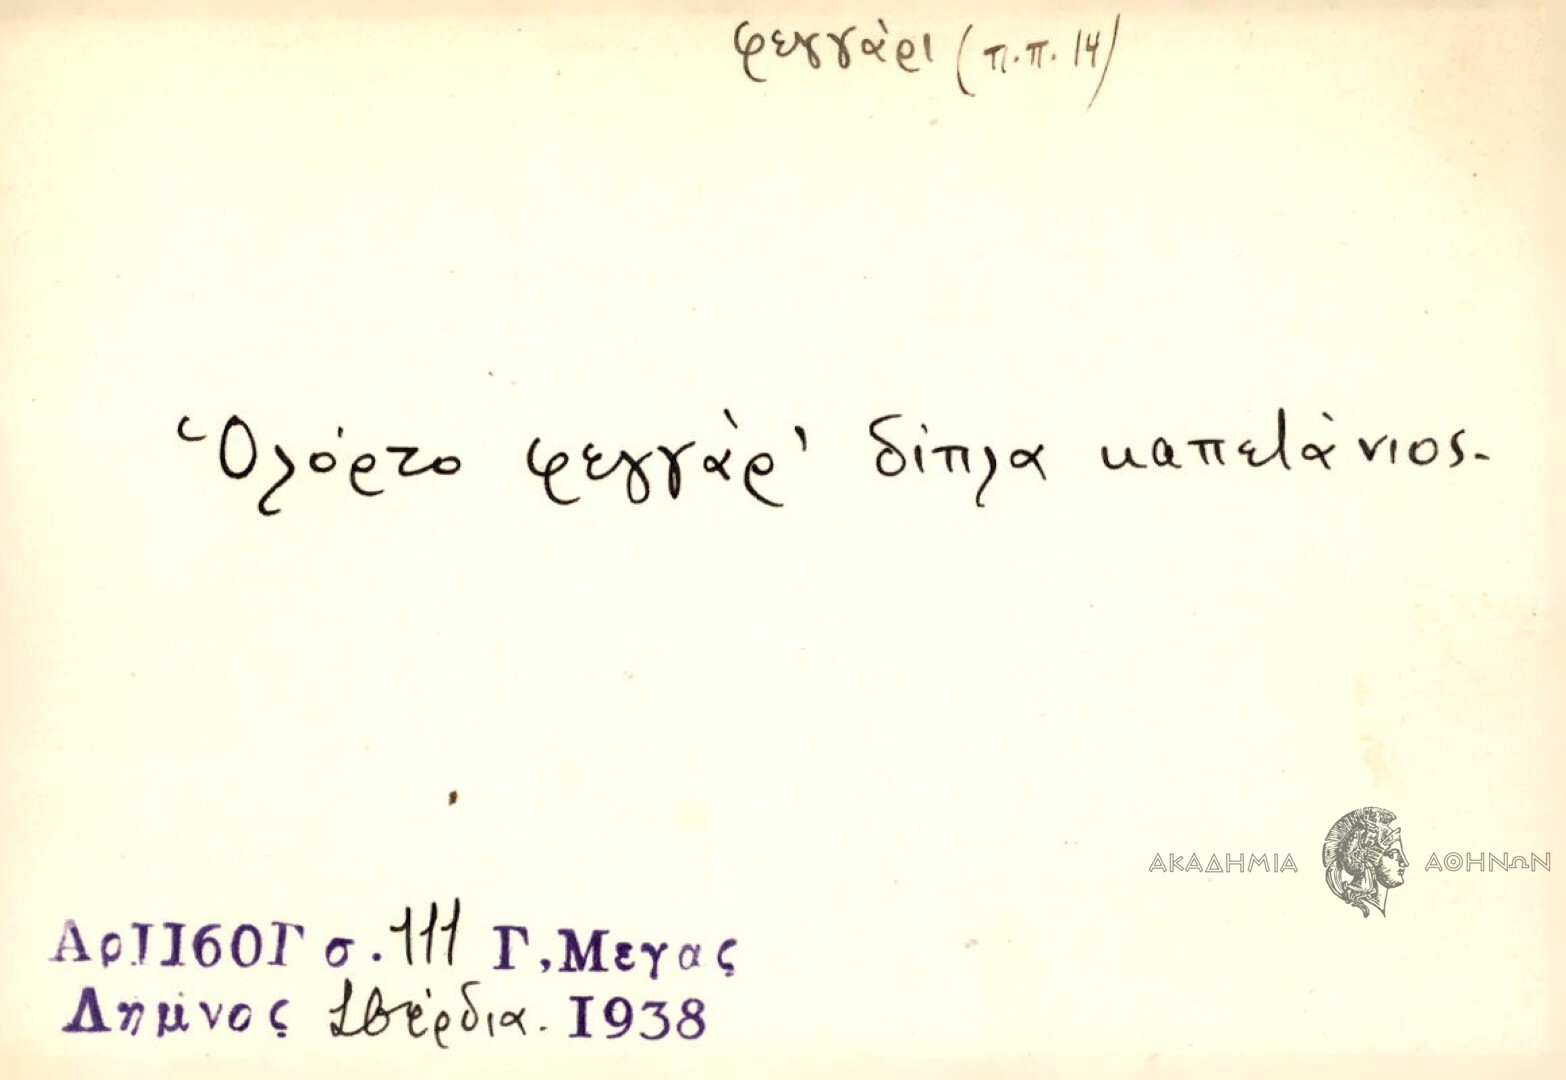 φεγγάρι (π.π. 14)
Ὁλόρτο φεγγάρ' δίπλα καπετάνιος.
ΑΚΑΔΗΜΙΑ ΑΘΗΝΩΝ
Αρ. 1160Γ σ. 111 Γ. Μεγας
Λημνος Σβέρδια. 1938